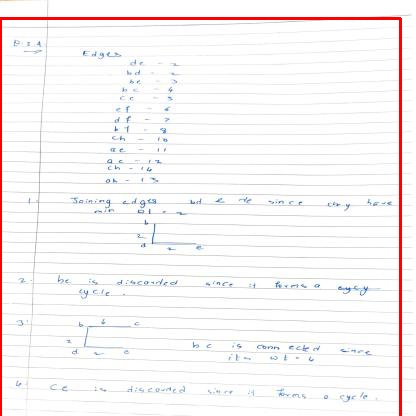 Edges
de - 2
bd - 2
be - 3
bc - 4
ce - 5
ef - 6
df - 7
bf - 8
ch - 10
ae - 11
ac - 12
ch - 14
ah - 13
1. Joining edges bd & de since they have
min wt = 2
b
2
d 2 e
2. be is discarded since it forms a cycy
cycle.
3.
b 4 c
2
d 2 e
bc is connected since
its wt = 4
4. ce is discarded since it forms a cycle.